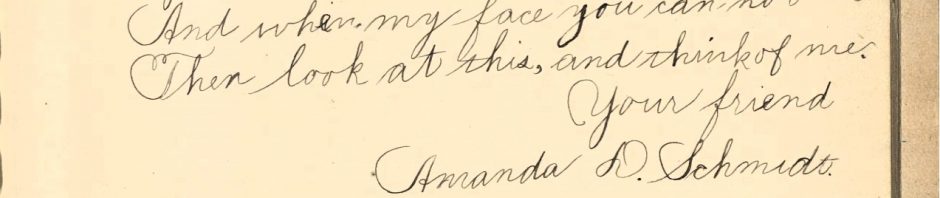 And when my face you can not
Then look at this, and think of me.
Your friend
Amanda D. Schmidt.